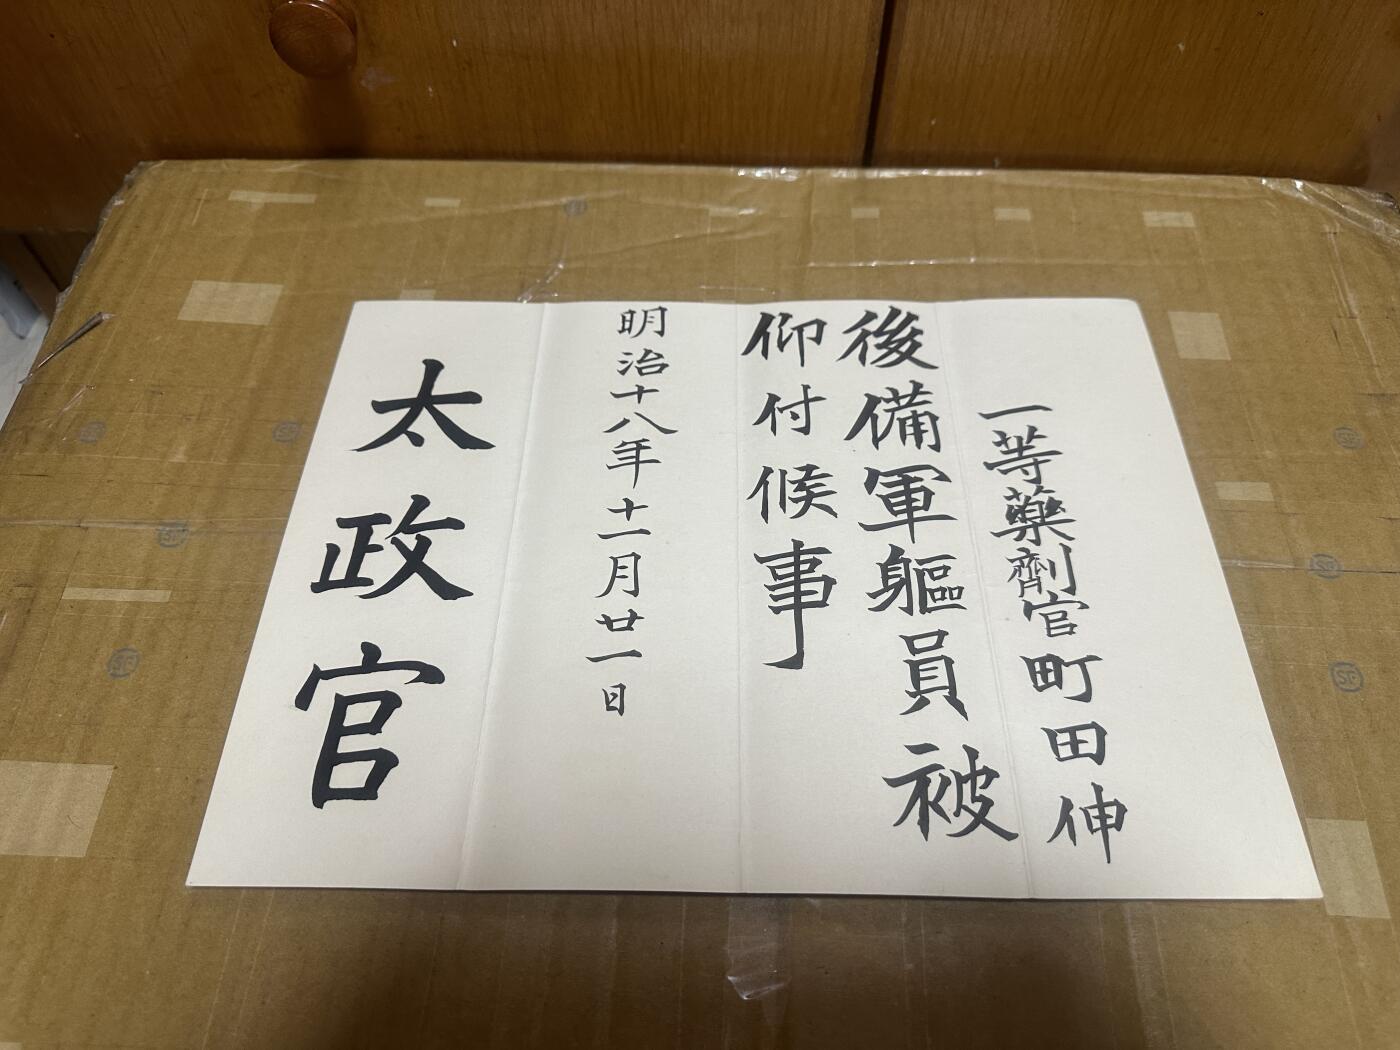 一等藥劑官町田伸
後備軍軀員被
仰付候事
明治十八年十一月廿一日
太政官